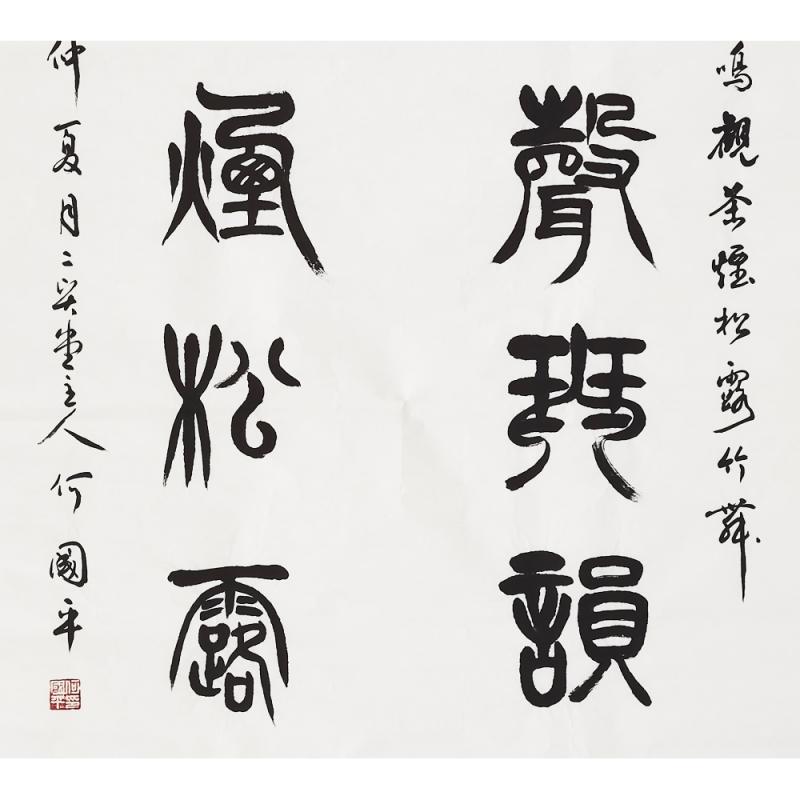 鳴觀茶煙松露竹舞
聲韻
煙松露
仲夏月二堂主人何國平